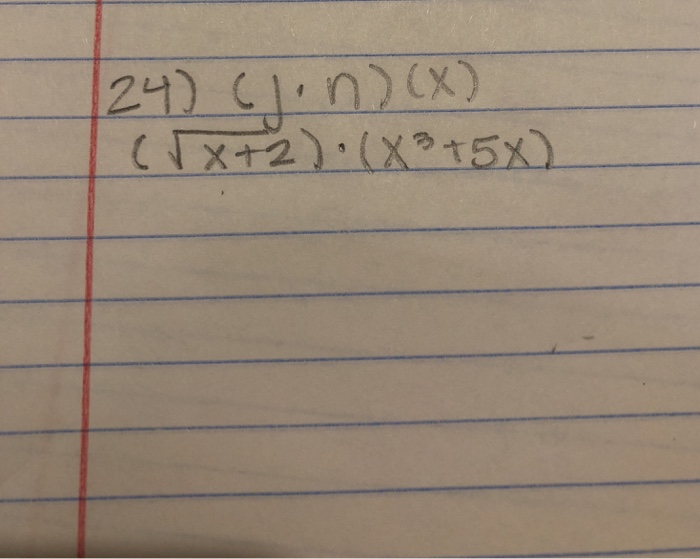 24) (j·n)(x)
(√x+2)·(x³+5x)